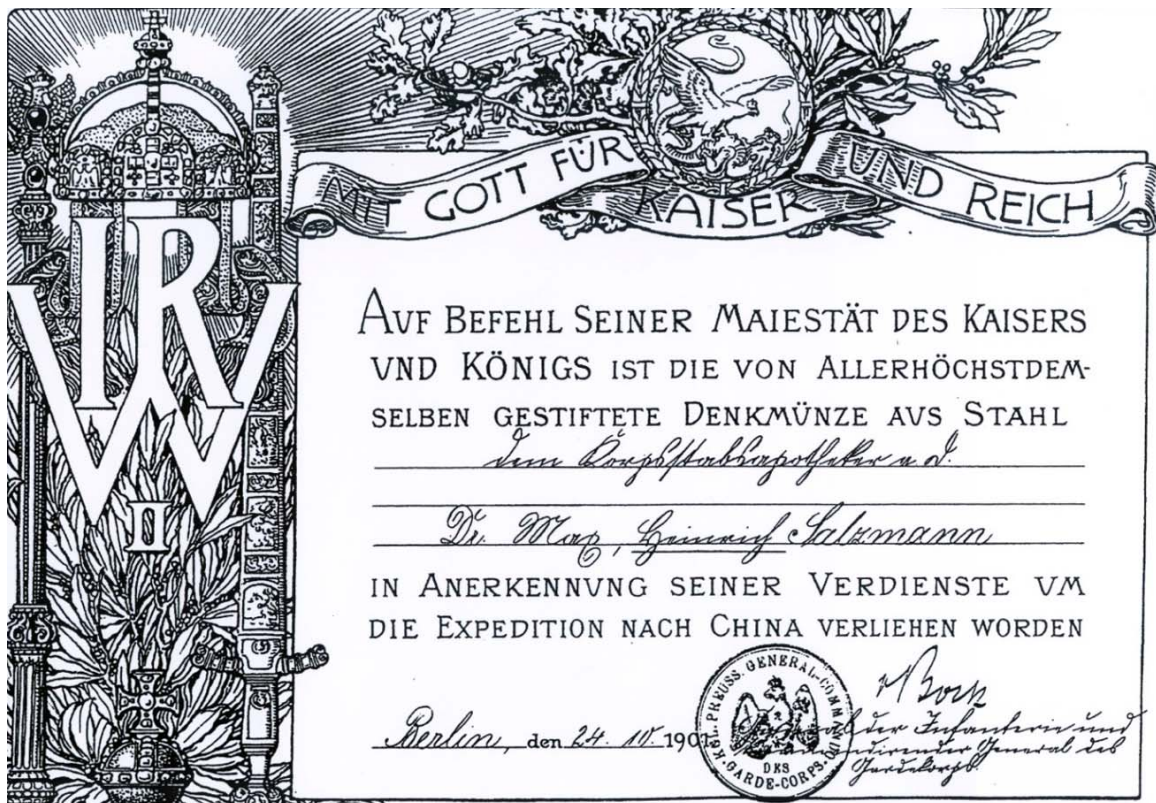 MIT GOTT FÜR KAISER UND REICH
IR
W
II
AVF BEFEHL SEINER MAIESTÄT DES KAISERS
VND KÖNIGS IST DIE VON ALLERHÖCHSTDEM-
SELBEN GESTIFTETE DENKMÜNZE AVS STAHL
dem Korpsstabsapotheker a. D.
Dr. Max, Heinrich Salzmann
IN ANERKENNVNG SEINER VERDIENSTE VM
DIE EXPEDITION NACH CHINA VERLIEHEN WORDEN
Berlin, den 24. 10. 190
KGL. PREUSS. GENERAL-COMM
DES
GARDE-CORPS
v Bock
der Infanterie und
General des
Gardekorps.